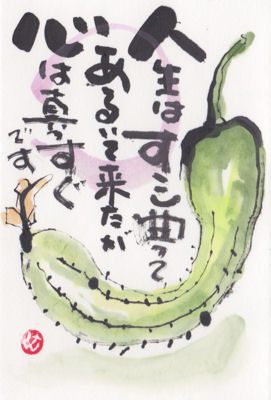 人生はすこ曲って
あるいて来たが
心は真っすぐ
です